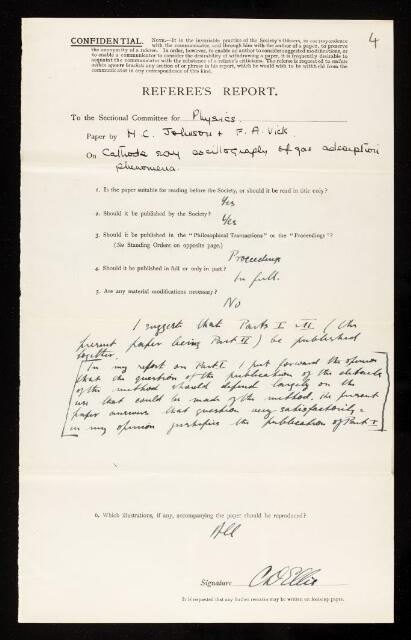 4
CONFIDENTIAL. NOTE.—It is the invariable practice of the Society's Officers, in correspondence
with the communicator, and through him with the author of a paper, to preserve
the anonymity of a referee. In order, however, to enable an author to consider suggested modifications, or
to enable a communicator to consider the desirability of withdrawing a paper, it is frequently desirable to
acquaint the communicator with the substance of a referee's criticisms. The referee is requested to enclose
within square brackets any section of or phrase in his report, which he would wish to be withheld from the
communicator in any correspondence of this kind.
REFEREE'S REPORT.
To the Sectional Committee for Physics.
Paper by M. C. Johnson + F. A. Vick.
On Cathode ray oscillography of gas adsorption
phenomena.
1. Is the paper suitable for reading before the Society, or should it be read in title only?
Yes
2. Should it be published by the Society?
Yes
3. Should it be published in the "Philosophical Transactions" or the "Proceedings"?
(See Standing Orders on opposite page.)
Proceedings
4. Should it be published in full or only in part?
In full.
5. Are any material modifications necessary?
No
I suggest that Parts I + II (the
present paper being Part II) be published
together.
[In my report on Part I I put forward the opinion
that the question of the publication of the details
of the method should depend largely on the
use that could be made of the method. The present
paper answers that question very satisfactorily &
in my opinion justifies the publication of Part I]
6. Which illustrations, if any, accompanying the paper should be reproduced?
All
Signature C D Ellis
It is requested that any further remarks may be written on looking paper.